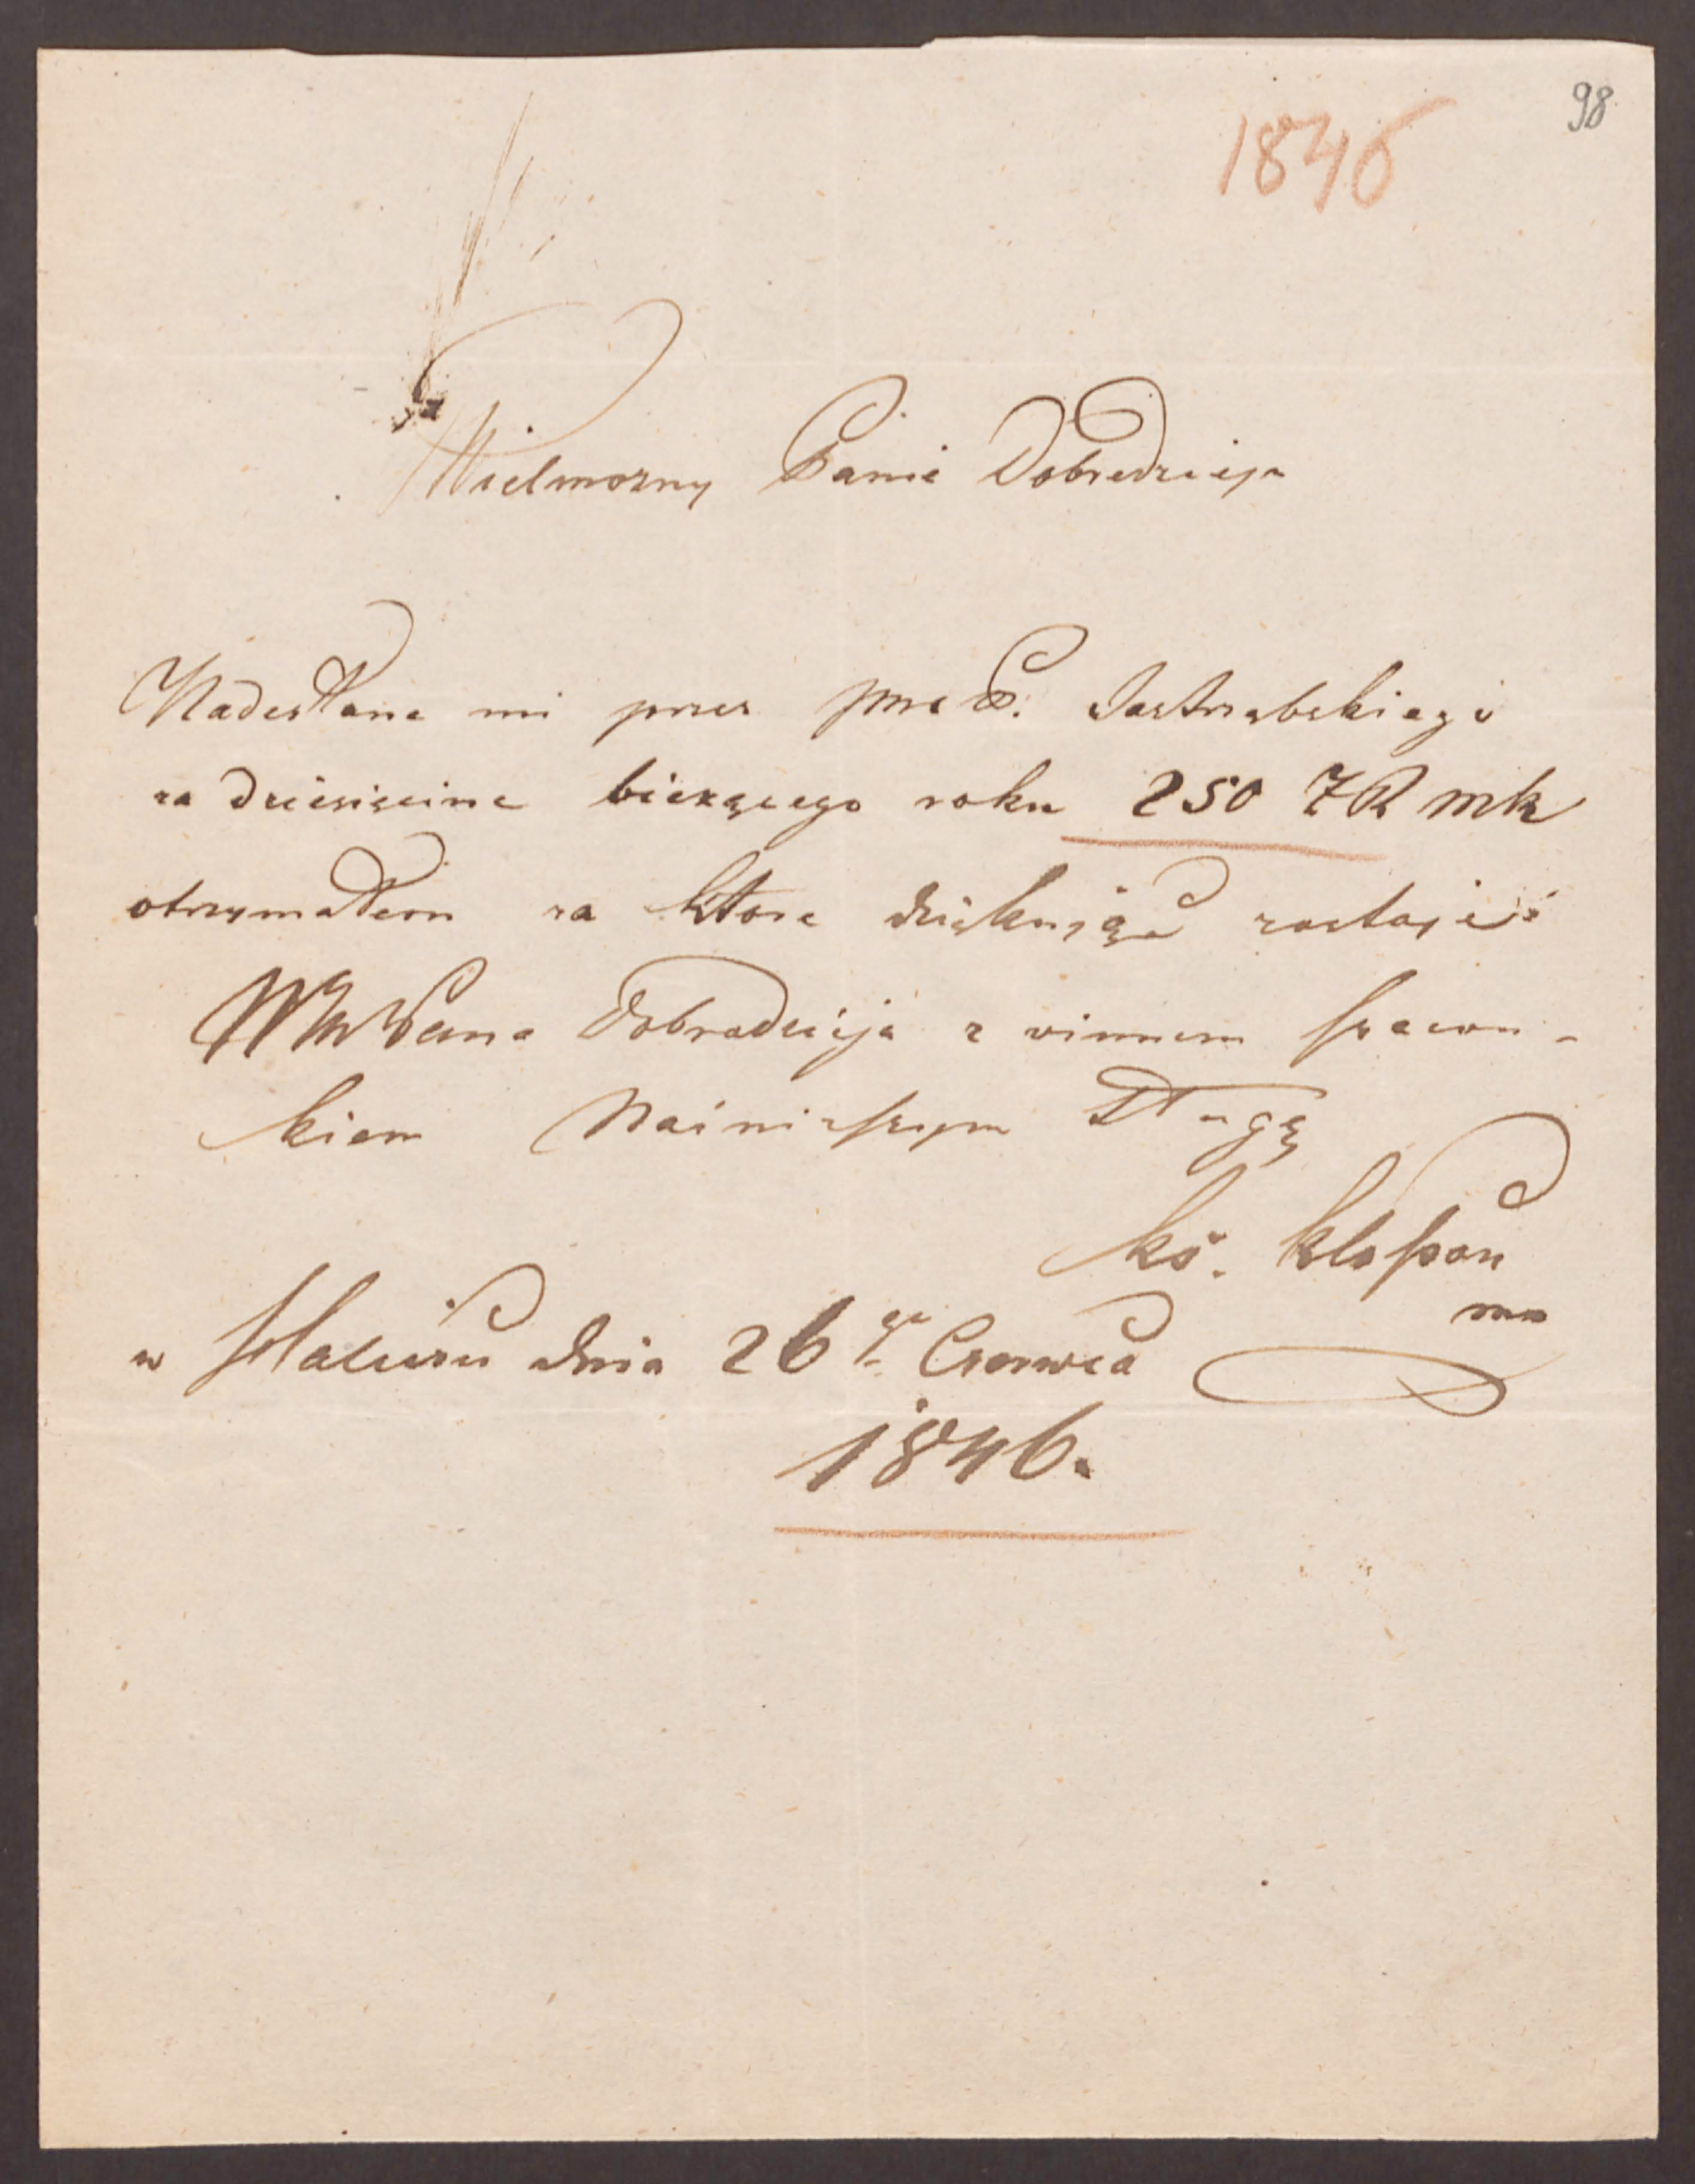 98
1846
Wielmożny Panie Dobrodzieju
Nadesłane mi przez Jastrzębskiego
za dziesięcine bieżącego roku 250 ZR mk
otrzymałem za ktore dziękuiąc zostaję
Pana Dobrodzieja z winnem szacun-
kiem Nainiższym sługą
ks. 
w dnia 26go Czerwca
1846.